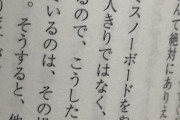 んて絶対にありえ
スノーボードをや
人きりではなく、
るので、こうした
いるのは、その
そうすると、他